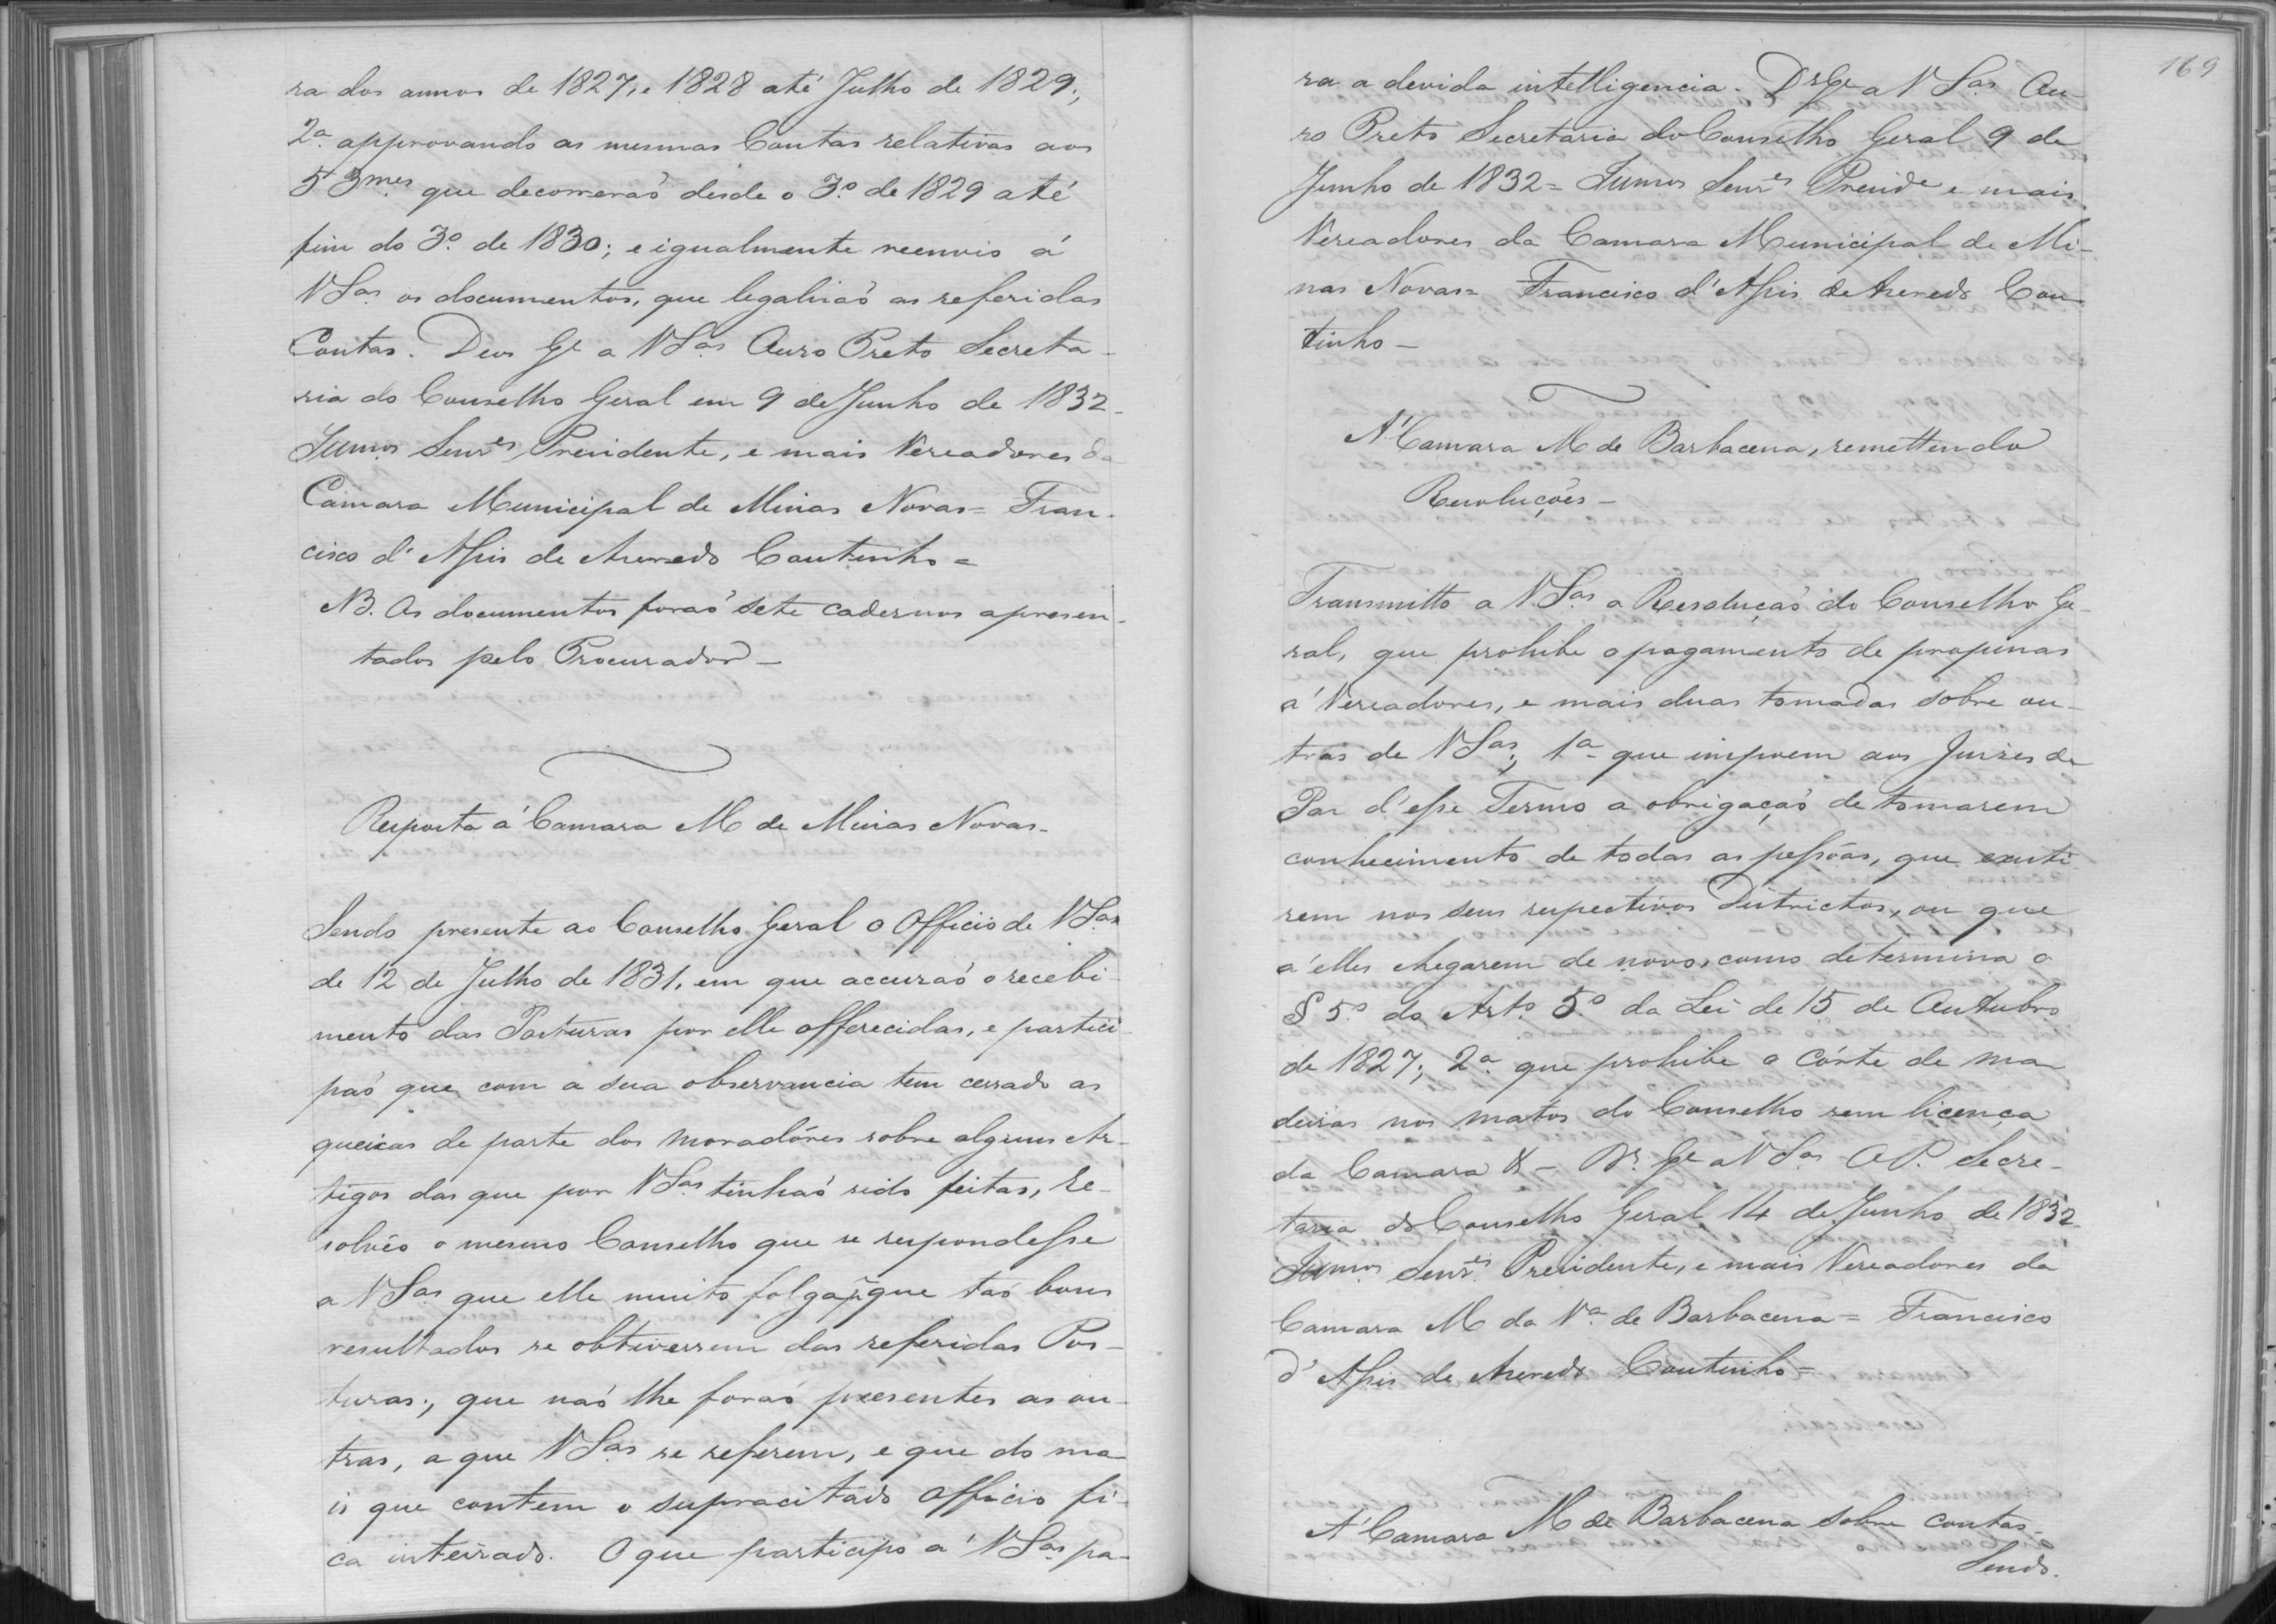 ra dos annos de 1827, e 1828 até Julho de 1829;
2ª approvando as mesmas Contas relativas aos
5 3mes que decorreraõ desde o 3º de 1829 até
fim do 3º de 1830; e igualmente reenvio á
VSas os documentos, que legalisaõ as referidas
Contas. Deos Ge a VSas Ouro Preto Secreta-
ria do Conselho Geral em 9 de Junho de 1832-
Illmos Senres Presidente, e mais Vereadores da
Camara Municipal de Minas Novas= Fran-
cisco d'Assis de Azeredo Coutinho=
NB. Os documentos foraõ sete cadernos apresen-
tados pelo Procurador-
Resposta á Camara M de Minas Novas-
Sendo presente ao Conselho Geral o Officio de VSas
de 12 de Julho de 1831, em que accusaõ o recebi-
mento das Posturas por elle offerecidas, e partici-
paõ que com a sua observancia tem cessado as
queixas de parte dos moradóres sobre alguns Ar-
tigos das que por VSas tinhaõ sido feitas, re-
solvêo o mesmo Conselho que se respondesse
a VSas que elle muito folga, que taõ bons
resultados se obtivessem das referidas Pos-
turas; que naõ lhe foraõ presentes as ou-
tras, a que VSas se referem, e que do ma-
is que contem o supracitado Officio fi-
ca inteirado. O que participo á VSas pa-
169
ra a devida intelligencia. Ds Ge a VSas Ou-
ro Preto Secretaria do Conselho Geral 9 de
Junho de 1832= Illmos Senres Preside e mais
Vereadores da Camara Municipal de Mi-
nas Novas= Francisco d'Assis de Azeredo Cou-
tinho-
A' Camara M de Barbacena, remettendo
Resoluções-
Transmitto a VSas a Resoluçaõ do Conselho Ge-
ral, que prohibe o pagamento de propinas
á Vereadores, e mais duas tomadas sobre ou-
tras de VSas; 1ª que impoem aos Juizes de
Paz d'esse Termo a obrigaçaõ de tomarem
conhecimento de todas as pessôas, que existi-
rem nos seus respectivos Districtos, ou que
á elles chegarem de novo, como determina o
§ 5º do Artº 5º da Lei de 15 de Outubro
de 1827; 2ª que prohibe o córte de ma-
deiras nos matos do Conselho sem licença
da Camara &- Ds Ge a VSas OP. Secre-
taria do Conselho Geral 14 de Junho de 1832-
Illmos Senres Presidente, e mais Vereadores da
Camara M da Vª de Barbacena= Francisco
d'Assis de Azeredo Coutinho=
A' Camara M de Barbacena sobre contas-
Sendo.